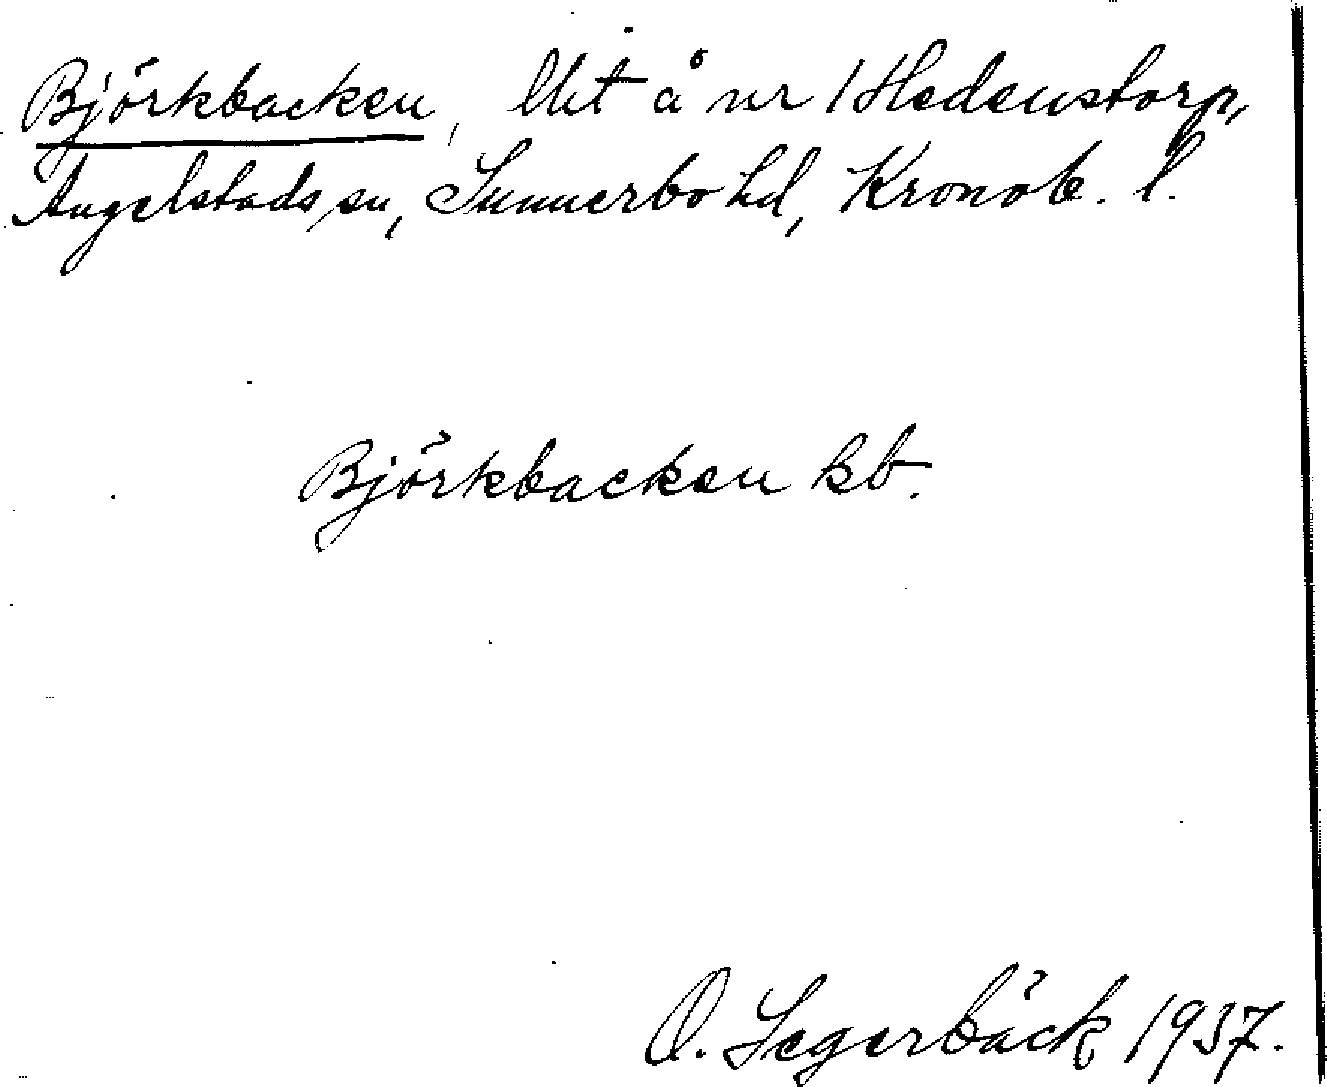 Björkbacken, lht å nr 1 Hedenstorp,
Angelstads sn, Sunnerbo hd, Kronob. l.
Björkbacken kb.
O. Segerbäck 1937.